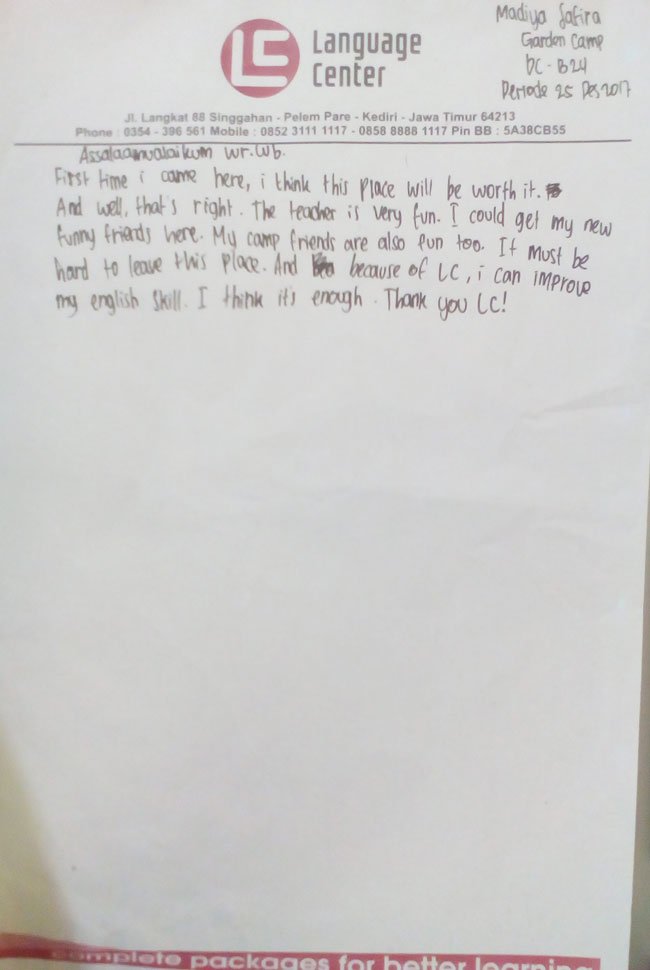 Madiya Safira
Garden Camp
DC - B24
Periode 25 Des 2017
LC Language
Center
Jl. Langkat 88 Singgahan - Pelem Pare - Kediri - Jawa Timur 64213
Phone : 0354 - 396 561 Mobile : 0852 3111 1117 - 0858 8888 1117 Pin BB : 5A38CB55
Assalaamualaikum wr.wb.
First time i came here, i think this place will be worth it.
And well, that's right. The teacher is very fun. I could get my new
funny friends here. My camp friends are also fun too. It must be
hard to leave this place. And because of LC, i can improve
my english skill. I think it's enough. Thank you LC!
complete packages for better learning